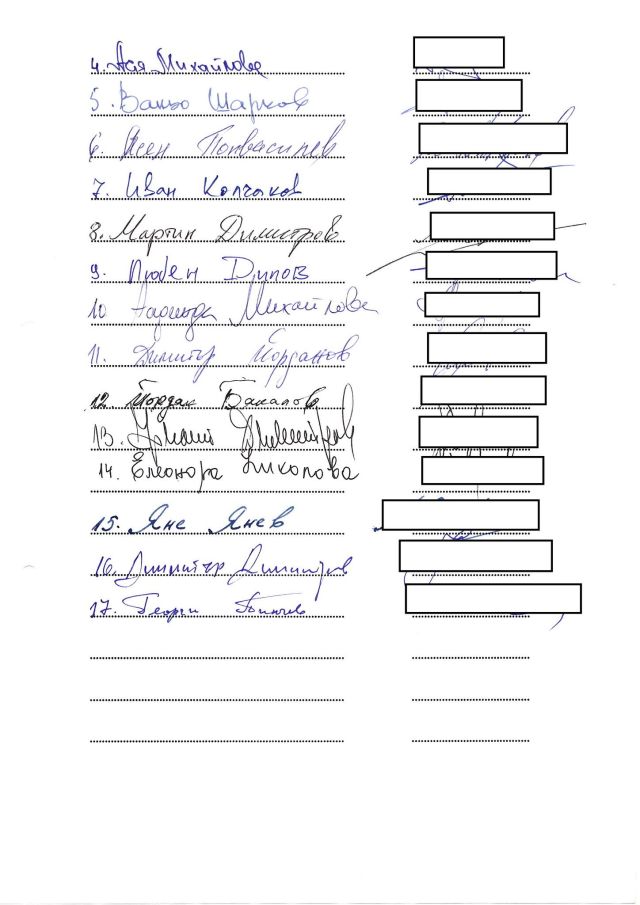 4. Ася Михайлова
5. Ваньо Шарков
6. Ясен Попвасилев
7. Иван Колчаков
8. Мартин Димитров
9. Любен Дилов
10 Надежда Михайлова
11. Димитър Йорданов
12. Йордан Бакалов
13. Димитров
14. Елеонора Николова
15. Яне Янев
16. Димитър Димитров
17. Георги